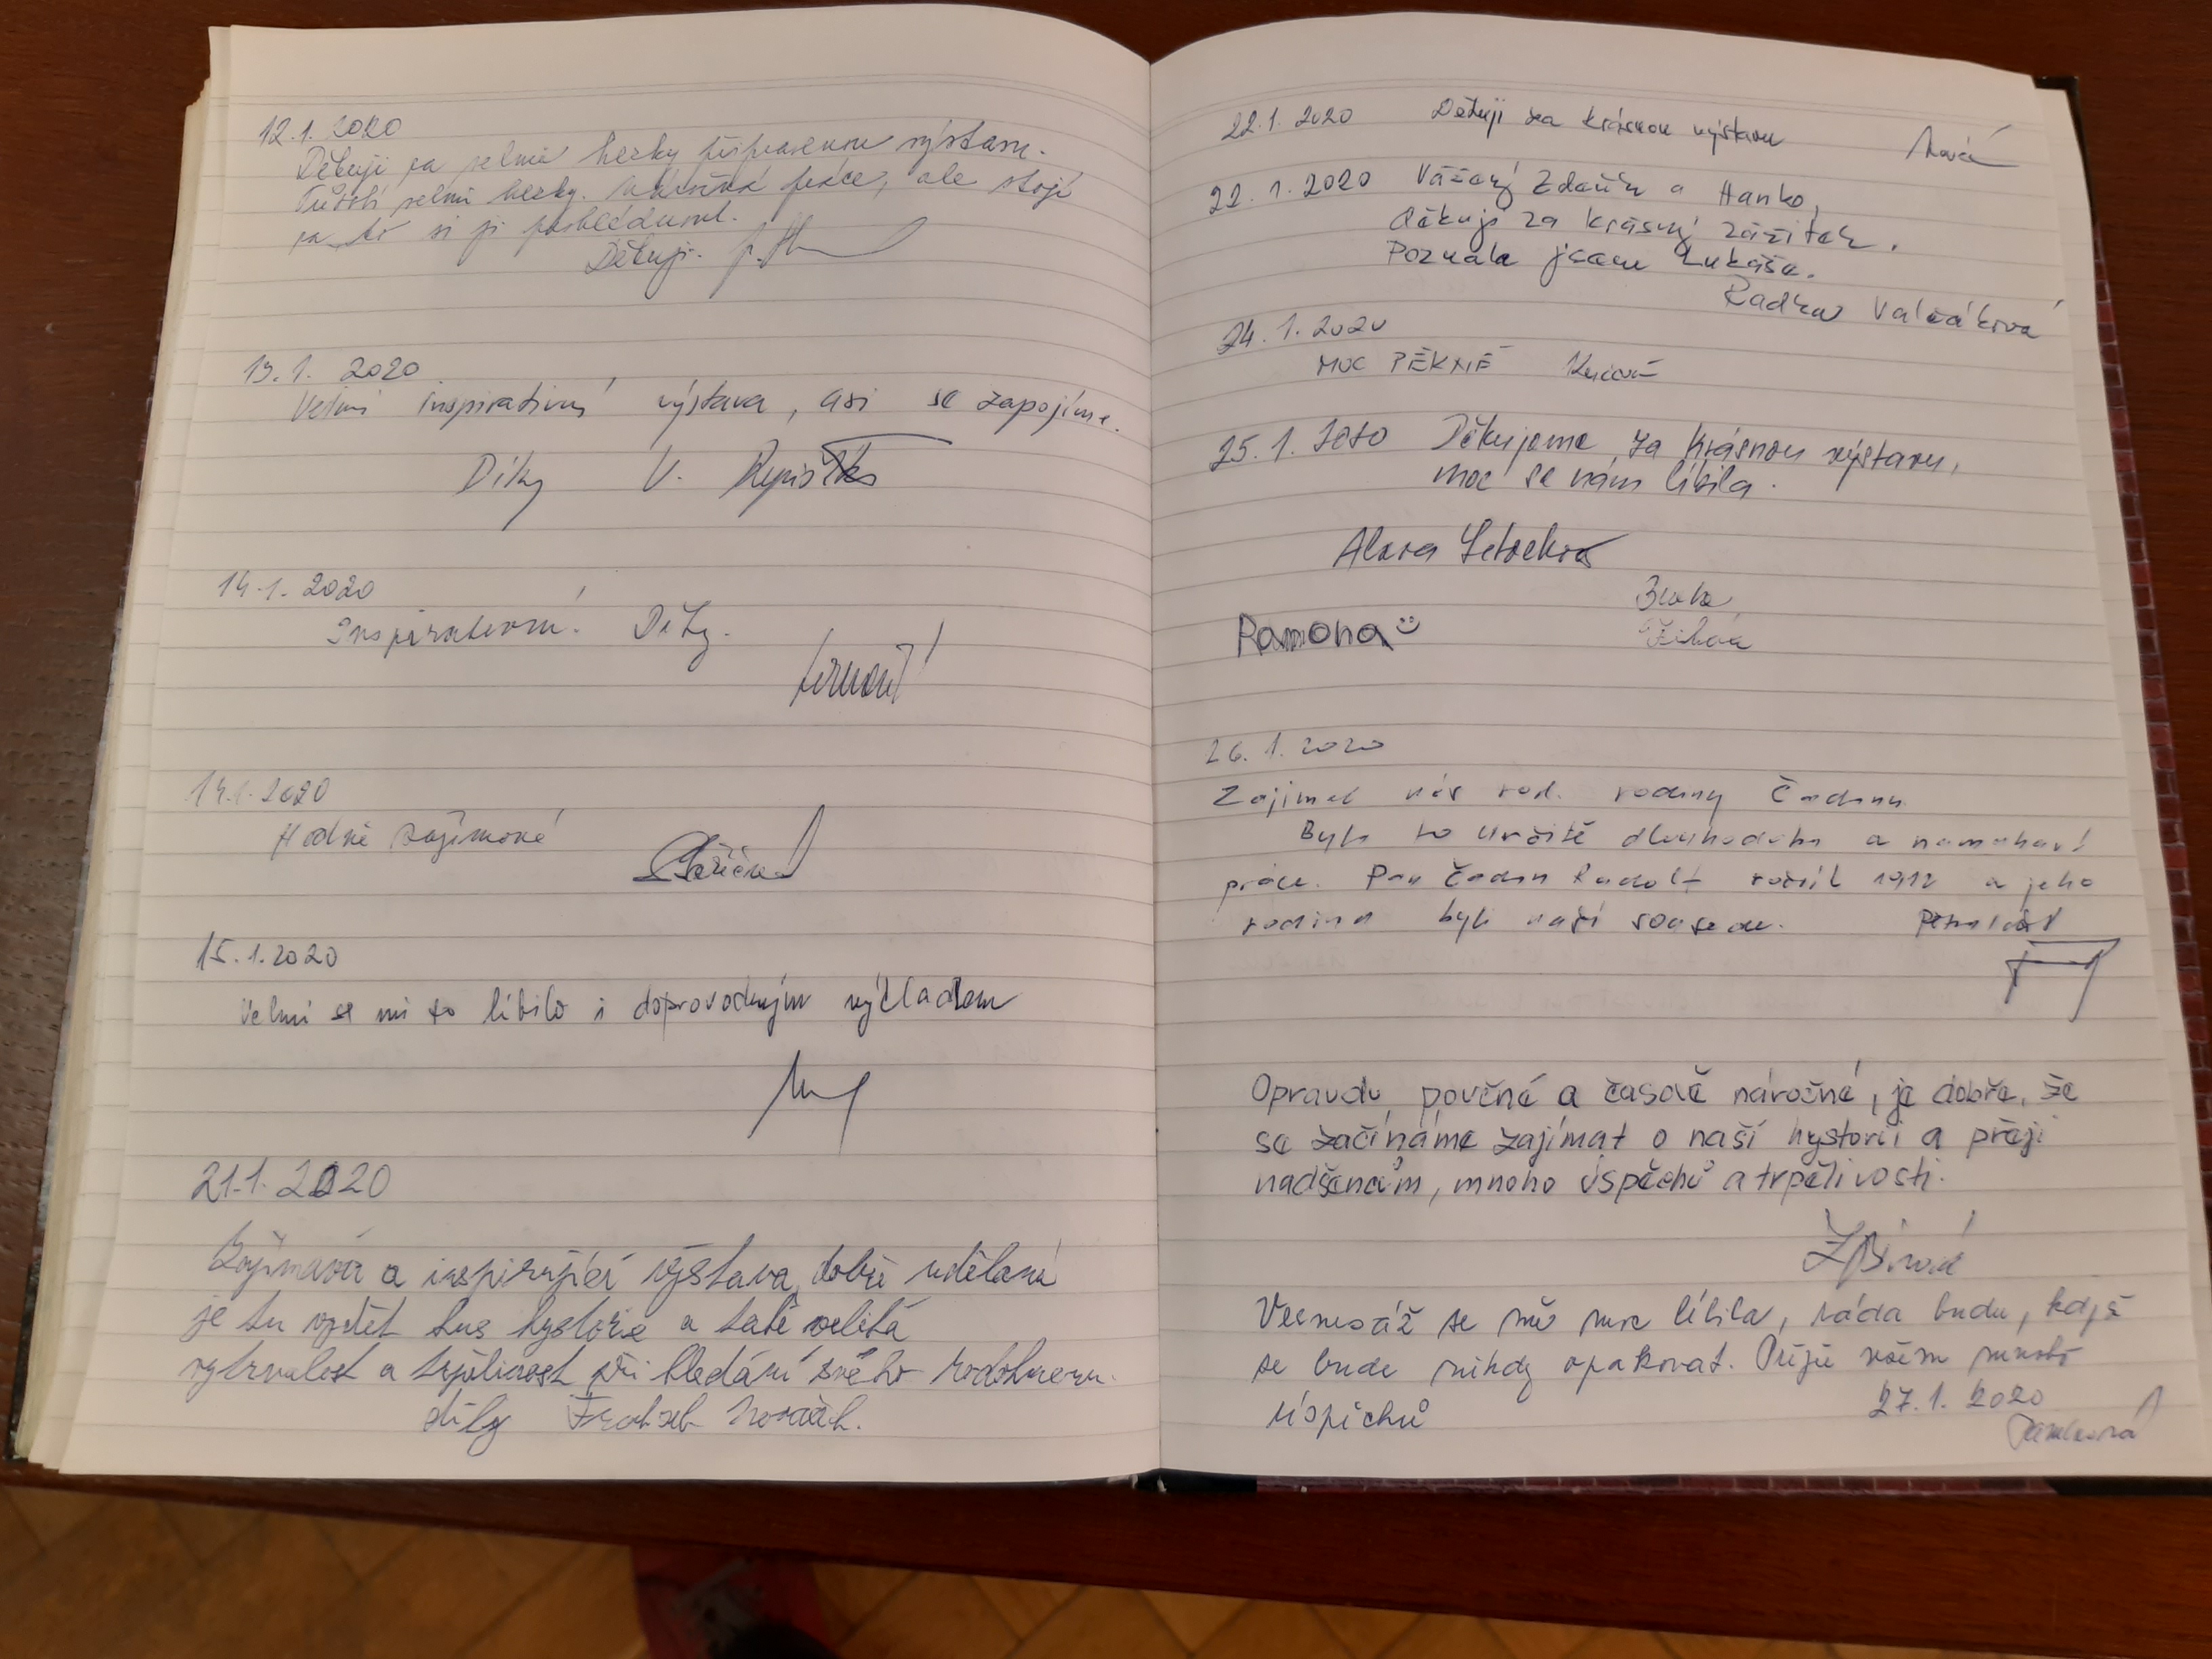 12.1. 2020
Děkuji za velmi hezky připravenou výstavu.
velmi hezky. práce, ale stojí
za to si ji
Děkuji.
13.1. 2020
Velmi inspirativní výstava, asi se zapojíme.
Díky V.
14.1. 2020
Inspirativní. Díky.
14.1. 2020
Hodně zajímavé
15.1.2020
Velmi se mi to líbilo i doprovodným výkladem
21.1. 2020
Zajímavá a inspirující výstava, dobře udělaná
je tu vydět kus hystorie a také veliká
vytrvalost a trpělivost při hledání svého rodokmenu.
díky
22.1. 2020 Děkuji za krásnou výstavu
22.1.2020 Vážený Zdeňku a Hanko,
děkuji za krásný zážitek.
Poznala jsem Lukáše.
Radka
24.1.2020
MOC PĚKNÉ
25.1. 2020 Děkujeme za krásnou výstavu,
moc se nám líbila.
Ramona
26.1.2020
Zajímal nás rod. rodiny Čadanu
Byla to určitě dlouhodobá a namahavá
práce. Pan Čadan Rudolf ročník 1912 a jeho
rodina byli naši sousedi.
Opravdu, povčné a časově náročné, je dobře, že
se začínáme zajímat o naší hystorii a přeji
nadšencům, mnoho úspěchů a trpělivosti.
Vernisáž se mě moc líbila, ráda budu, když
se bude někdy opakovat. Přeji všem mnoho
27.1. 2020
úspěchů